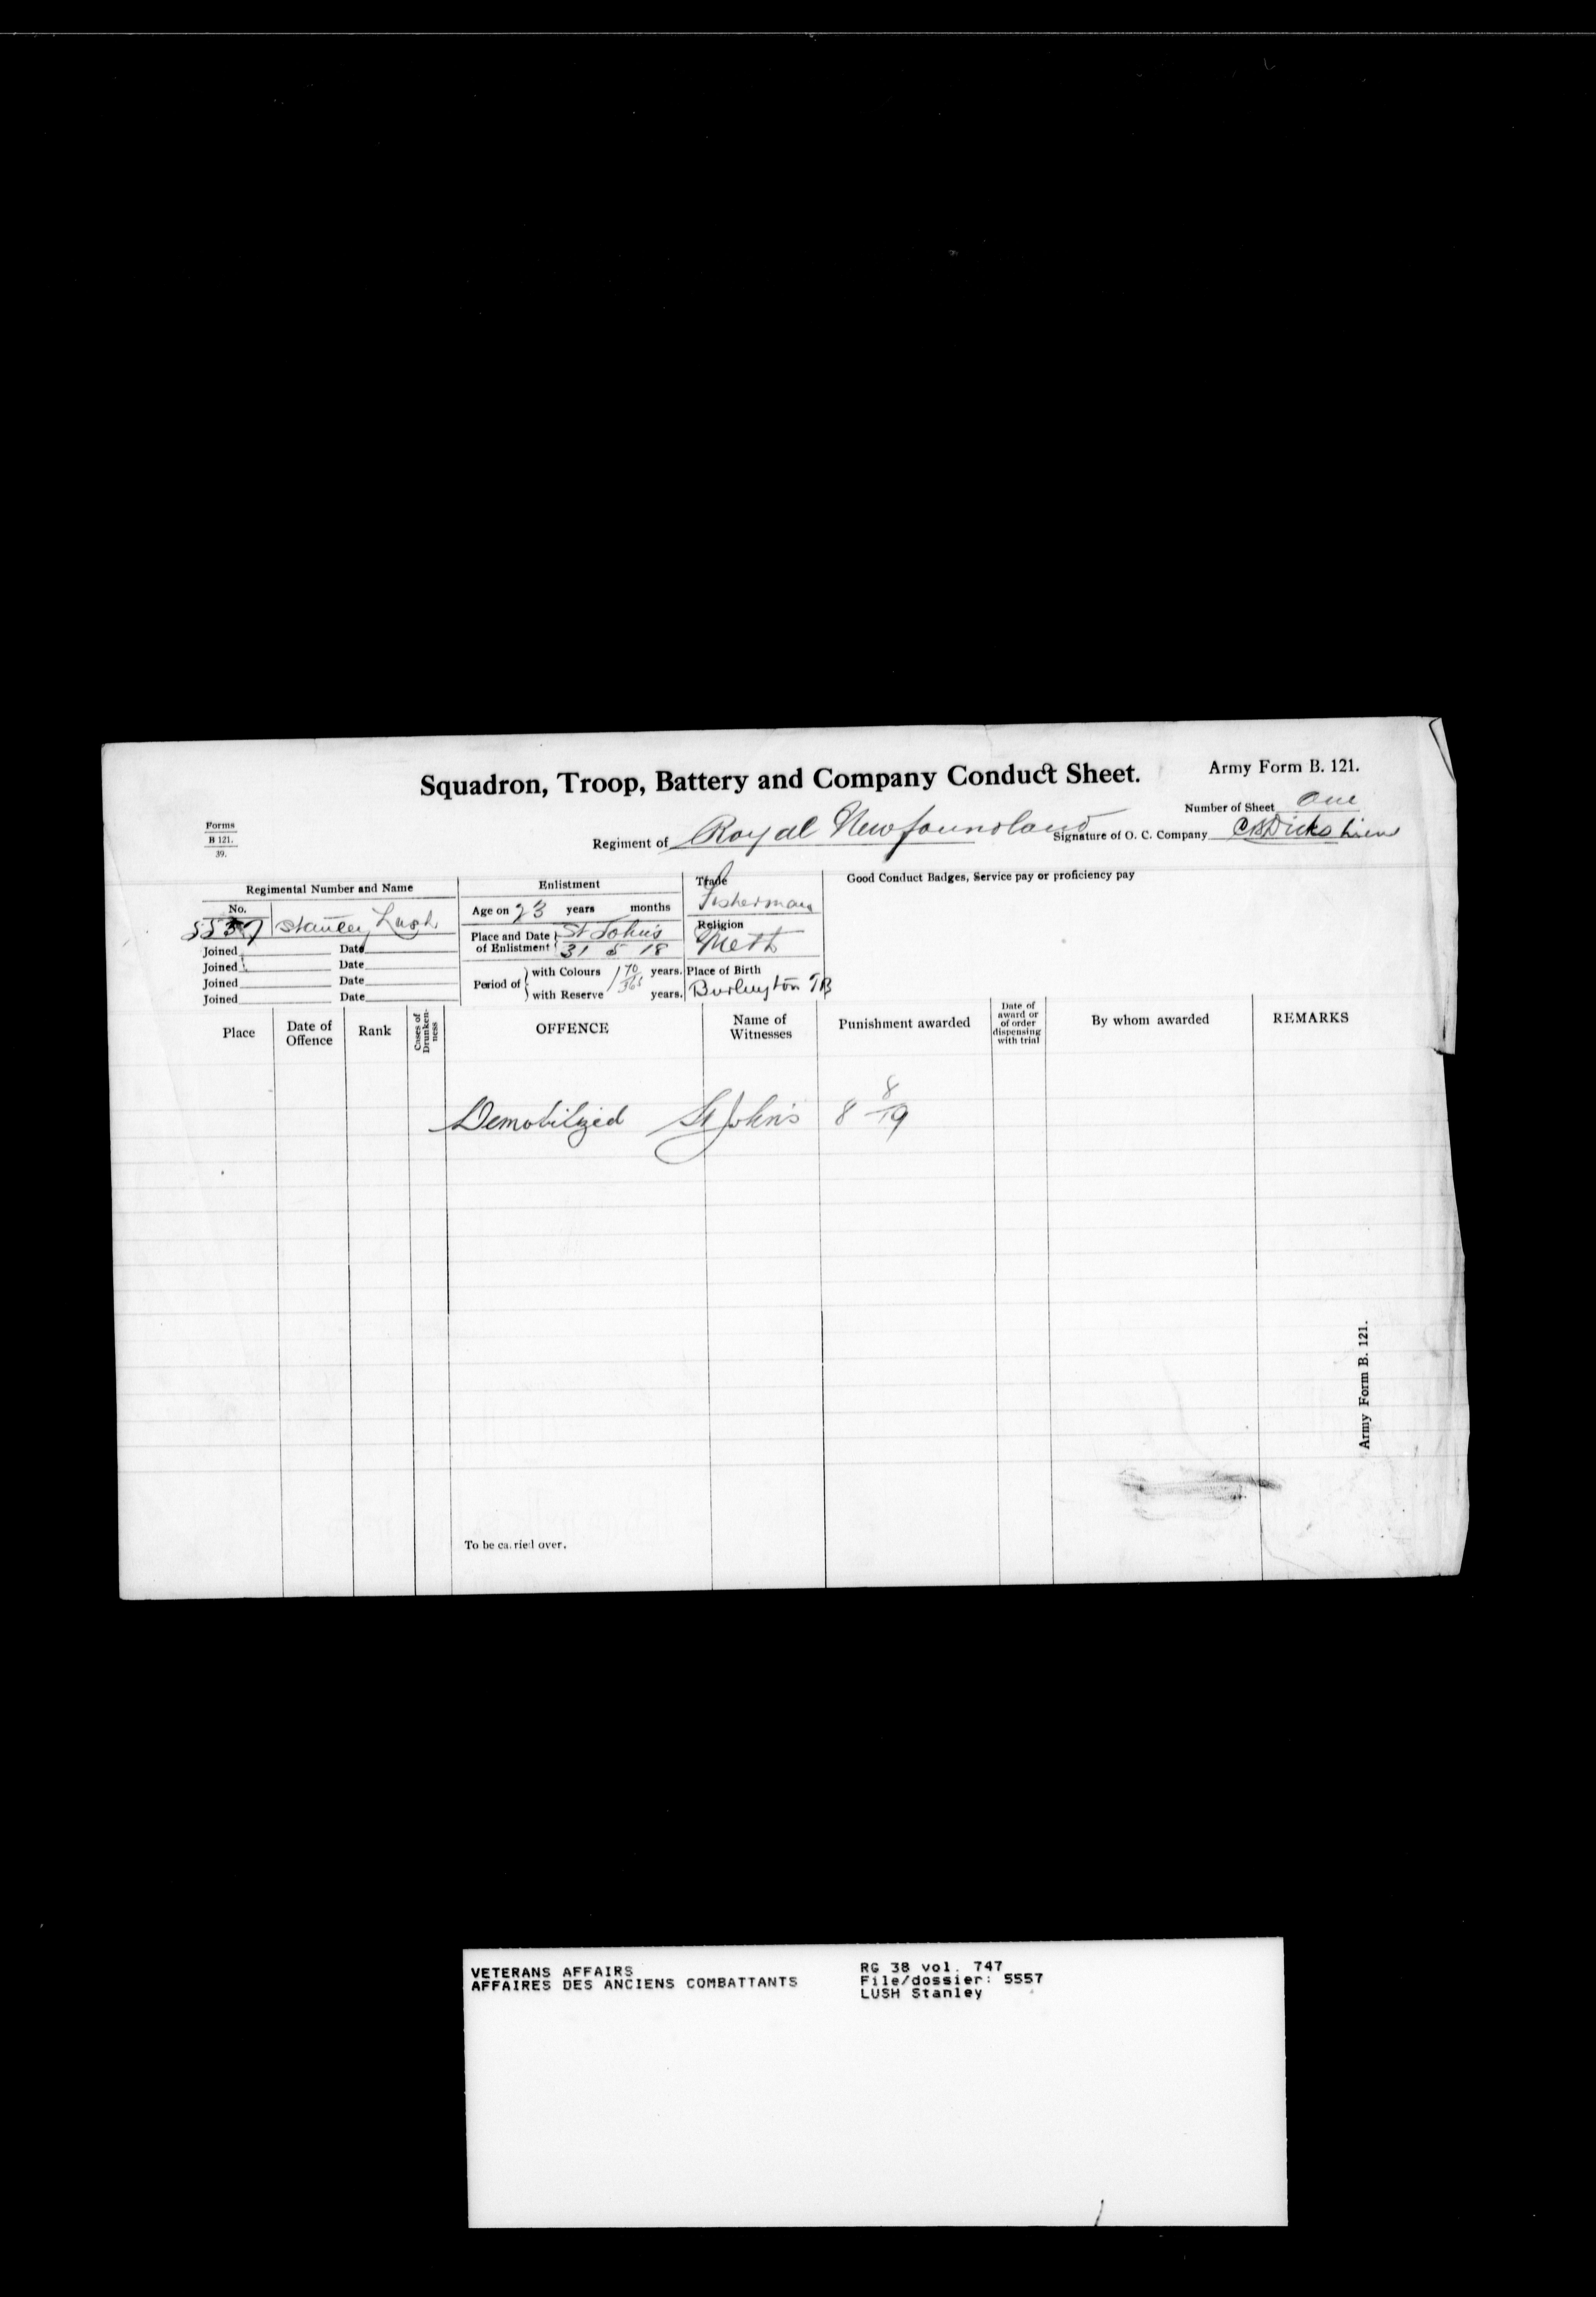 Squadron, Troop, Battery and Company Conduct Sheet.
Army Form B. 121.
Number of Sheet One
Forms
B 121.
39.
Regiment of Royal Newfoundland
Signature of O. C. Company C B Dicks Lieu
Regimental Number and Name
No.
5557 Stanley Lush
Joined Date
Joined Date
Joined Date
Joined Date
Enlistment
Age on 23 years months
Place and Date of Enlistment St John's
31 5 18
Period of with Colours 1 70/365 years.
with Reserve years.
Trade
Fisherman
Religion
Meth
Place of Birth
Burlington TB
Good Conduct Badges, Service pay or proficiency pay
Place
Date of Offence
Rank
Cases of Drunkenness
OFFENCE
Name of Witnesses
Punishment awarded
Date of award or of order dispensing with trial
By whom awarded
REMARKS
Demobilized St John's 8 8/19
To be carried over.
Army Form B. 121.
VETERANS AFFAIRS
AFFAIRES DES ANCIENS COMBATTANTS
RG 38 vol. 747
File/dossier: 5557
LUSH Stanley